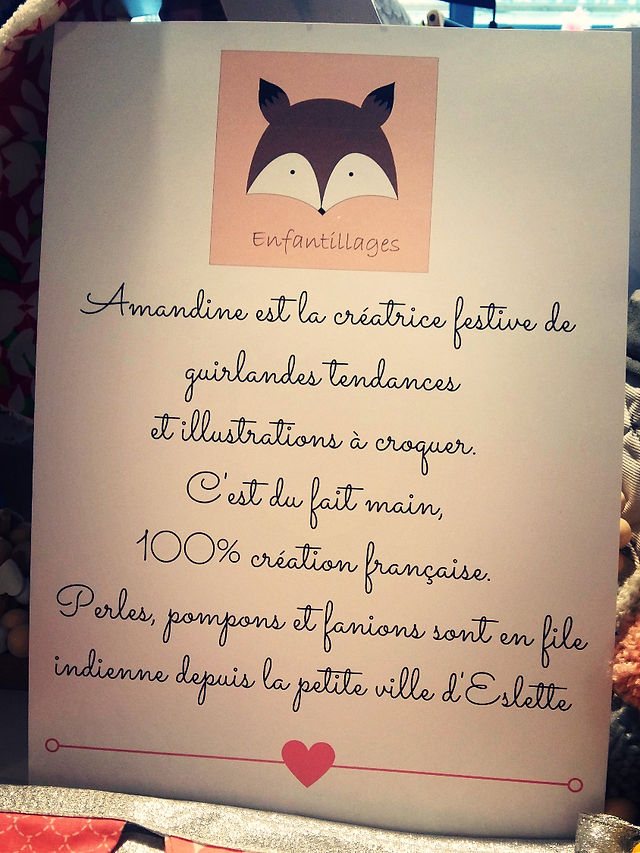 Enfantillages
Amandine est la créatrice festive de
guirlandes tendances
et illustrations à croquer.
C'est du fait main,
100% création française.
Perles, pompons et fanions sont en file
indienne depuis la petite ville d'Eslette